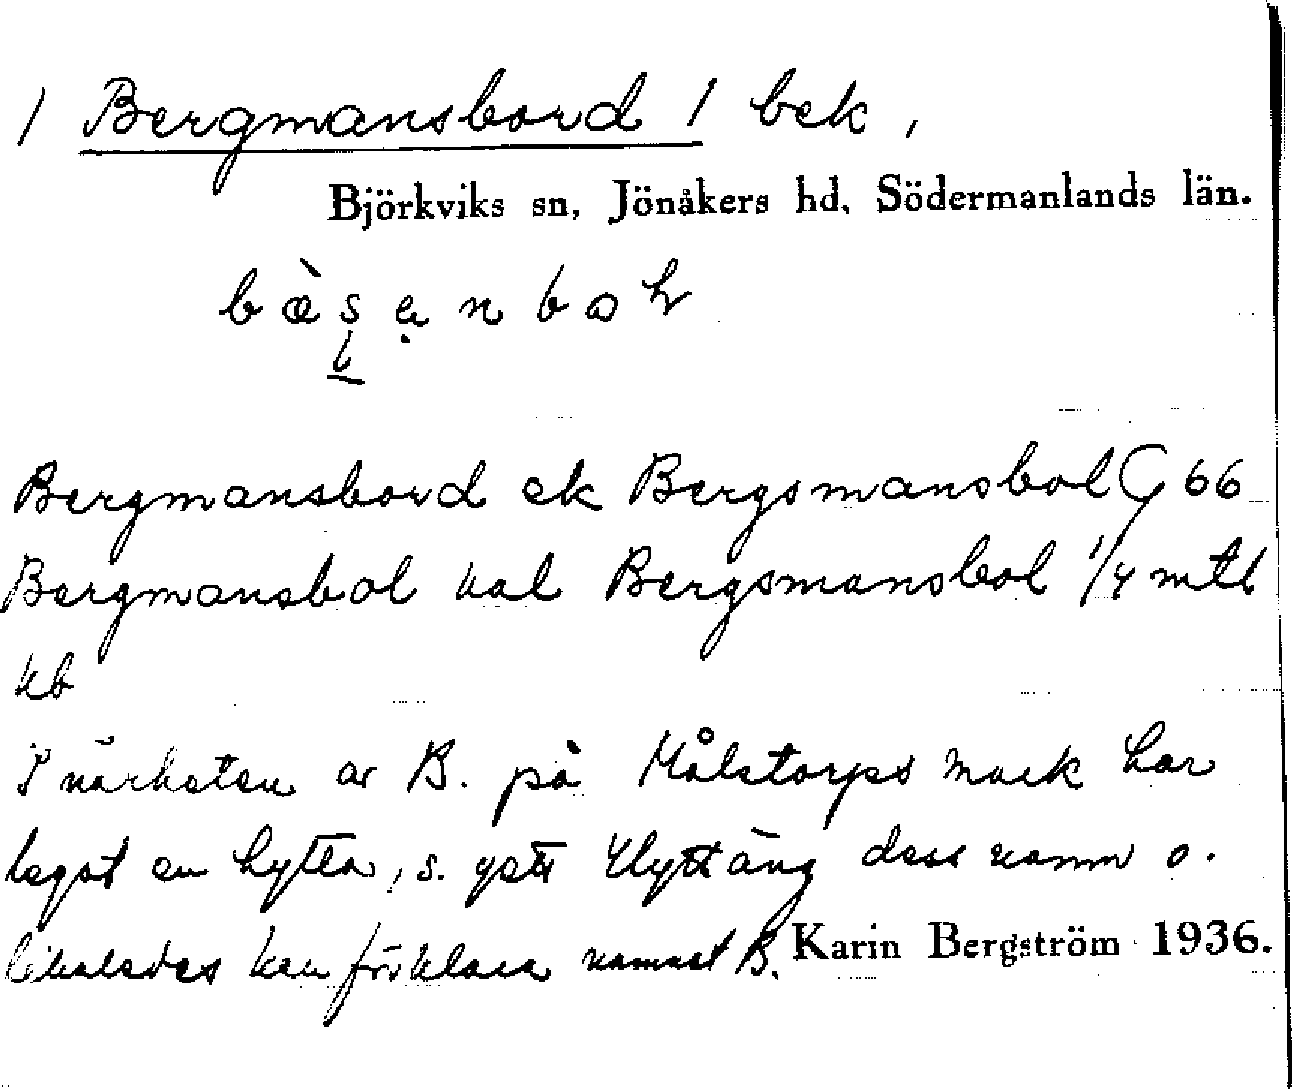 / Bergmansbord / bek,
Björkviks sn, Jönåkers hd, Södermanlands län.
Bergmansbord ek Bergsmansbol G 66
Bergmansbol kal Bergsmansbol 1/4 mtl
kb
I närheten av B. på Hålstorps mark har
legat en hytta, s. gett Hyttäng dess namn o.
likaledes kan förklara namnet B. Karin Bergström 1936.